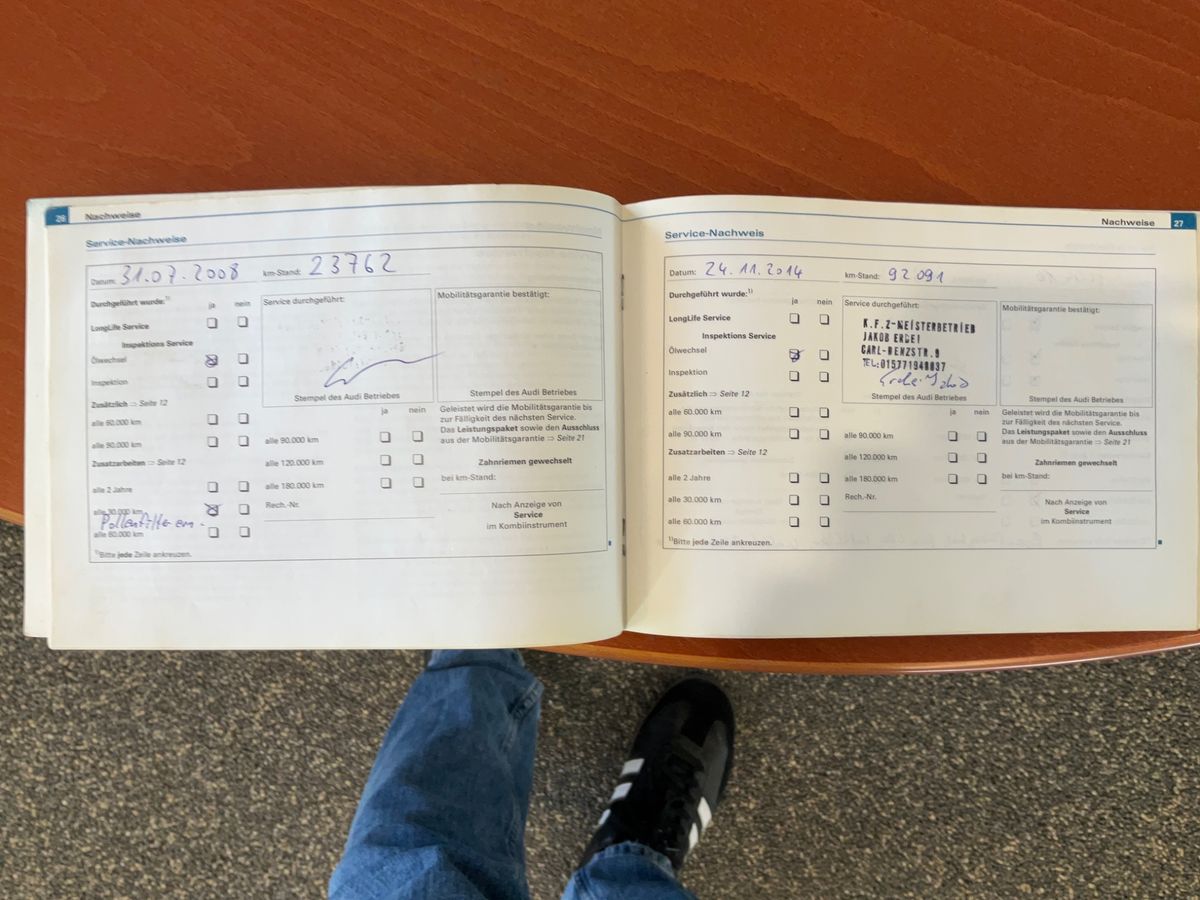 26 Nachweise
Service-Nachweise
Datum: 31.07.2008 km-Stand: 23762
Durchgeführt wurde:1) ja nein
LongLife Service
Inspektions Service
Ölwechsel
Inspektion
Zusätzlich ⇒ Seite 12
alle 60.000 km
alle 90.000 km
Zusatzarbeiten ⇒ Seite 12
alle 2 Jahre
alle 30.000 km
Pollenfilter
alle 60.000 km
1)Bitte jede Zeile ankreuzen.
Service durchgeführt:
Stempel des Audi Betriebes
ja nein
alle 90.000 km
alle 120.000 km
alle 180.000 km
Rech.-Nr.
Mobilitätsgarantie bestätigt:
Stempel des Audi Betriebes
Geleistet wird die Mobilitätsgarantie bis
zur Fälligkeit des nächsten Service.
Das Leistungspaket sowie den Ausschluss
aus der Mobilitätsgarantie ⇒ Seite 21
Zahnriemen gewechselt
bei km-Stand:
Nach Anzeige von
Service
im Kombiinstrument
Nachweise 27
Service-Nachweis
Datum: 24.11.2014 km-Stand: 92091
Durchgeführt wurde:1) ja nein
LongLife Service
Inspektions Service
Ölwechsel
Inspektion
Zusätzlich ⇒ Seite 12
alle 60.000 km
alle 90.000 km
Zusatzarbeiten ⇒ Seite 12
alle 2 Jahre
alle 30.000 km
alle 60.000 km
1)Bitte jede Zeile ankreuzen.
Service durchgeführt:
K.F.Z-MEISTERBETRIEB
JAKOB ERDEI
CARL-BENZSTR.9
TEL:015771948037
Stempel des Audi Betriebes
ja nein
alle 90.000 km
alle 120.000 km
alle 180.000 km
Rech.-Nr.
Mobilitätsgarantie bestätigt:
Stempel des Audi Betriebes
Geleistet wird die Mobilitätsgarantie bis
zur Fälligkeit des nächsten Service.
Das Leistungspaket sowie den Ausschluss
aus der Mobilitätsgarantie ⇒ Seite 21
Zahnriemen gewechselt
bei km-Stand:
Nach Anzeige von
Service
im Kombiinstrument